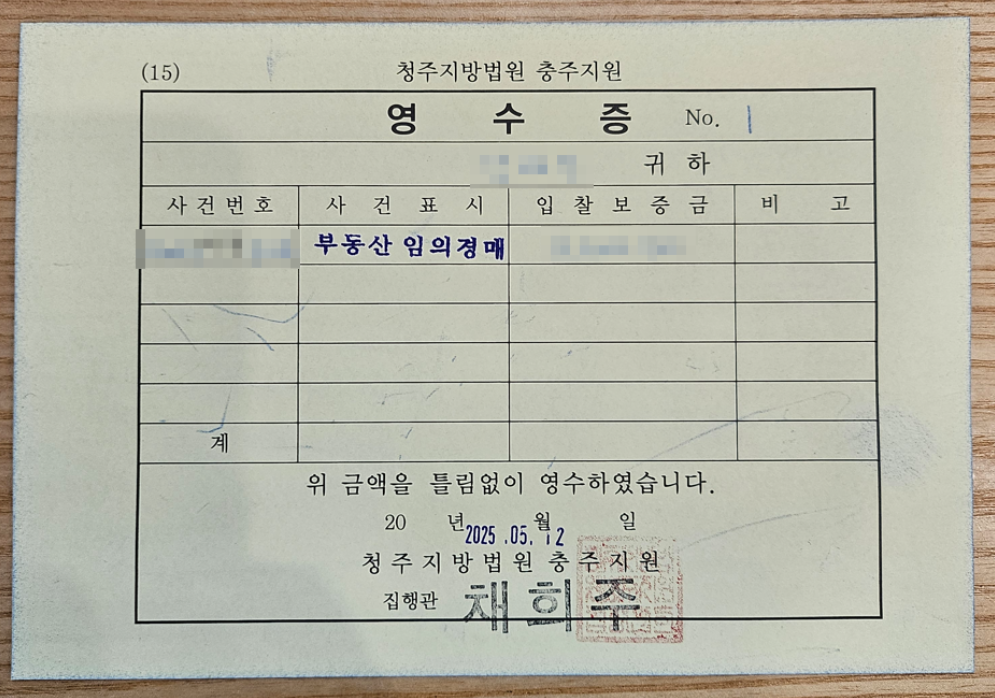 (15) 청주지방법원 충주지원
영 수 증 No. 1
귀 하
사 건 번 호 사 건 표 시 입 찰 보 증 금 비 고
부동산 임의경매
계
위 금액을 틀림없이 영수하였습니다.
20 년 월 일
2025 .05. 12
청 주 지 방 법 원 충 주 지 원
집행관 채 희 주